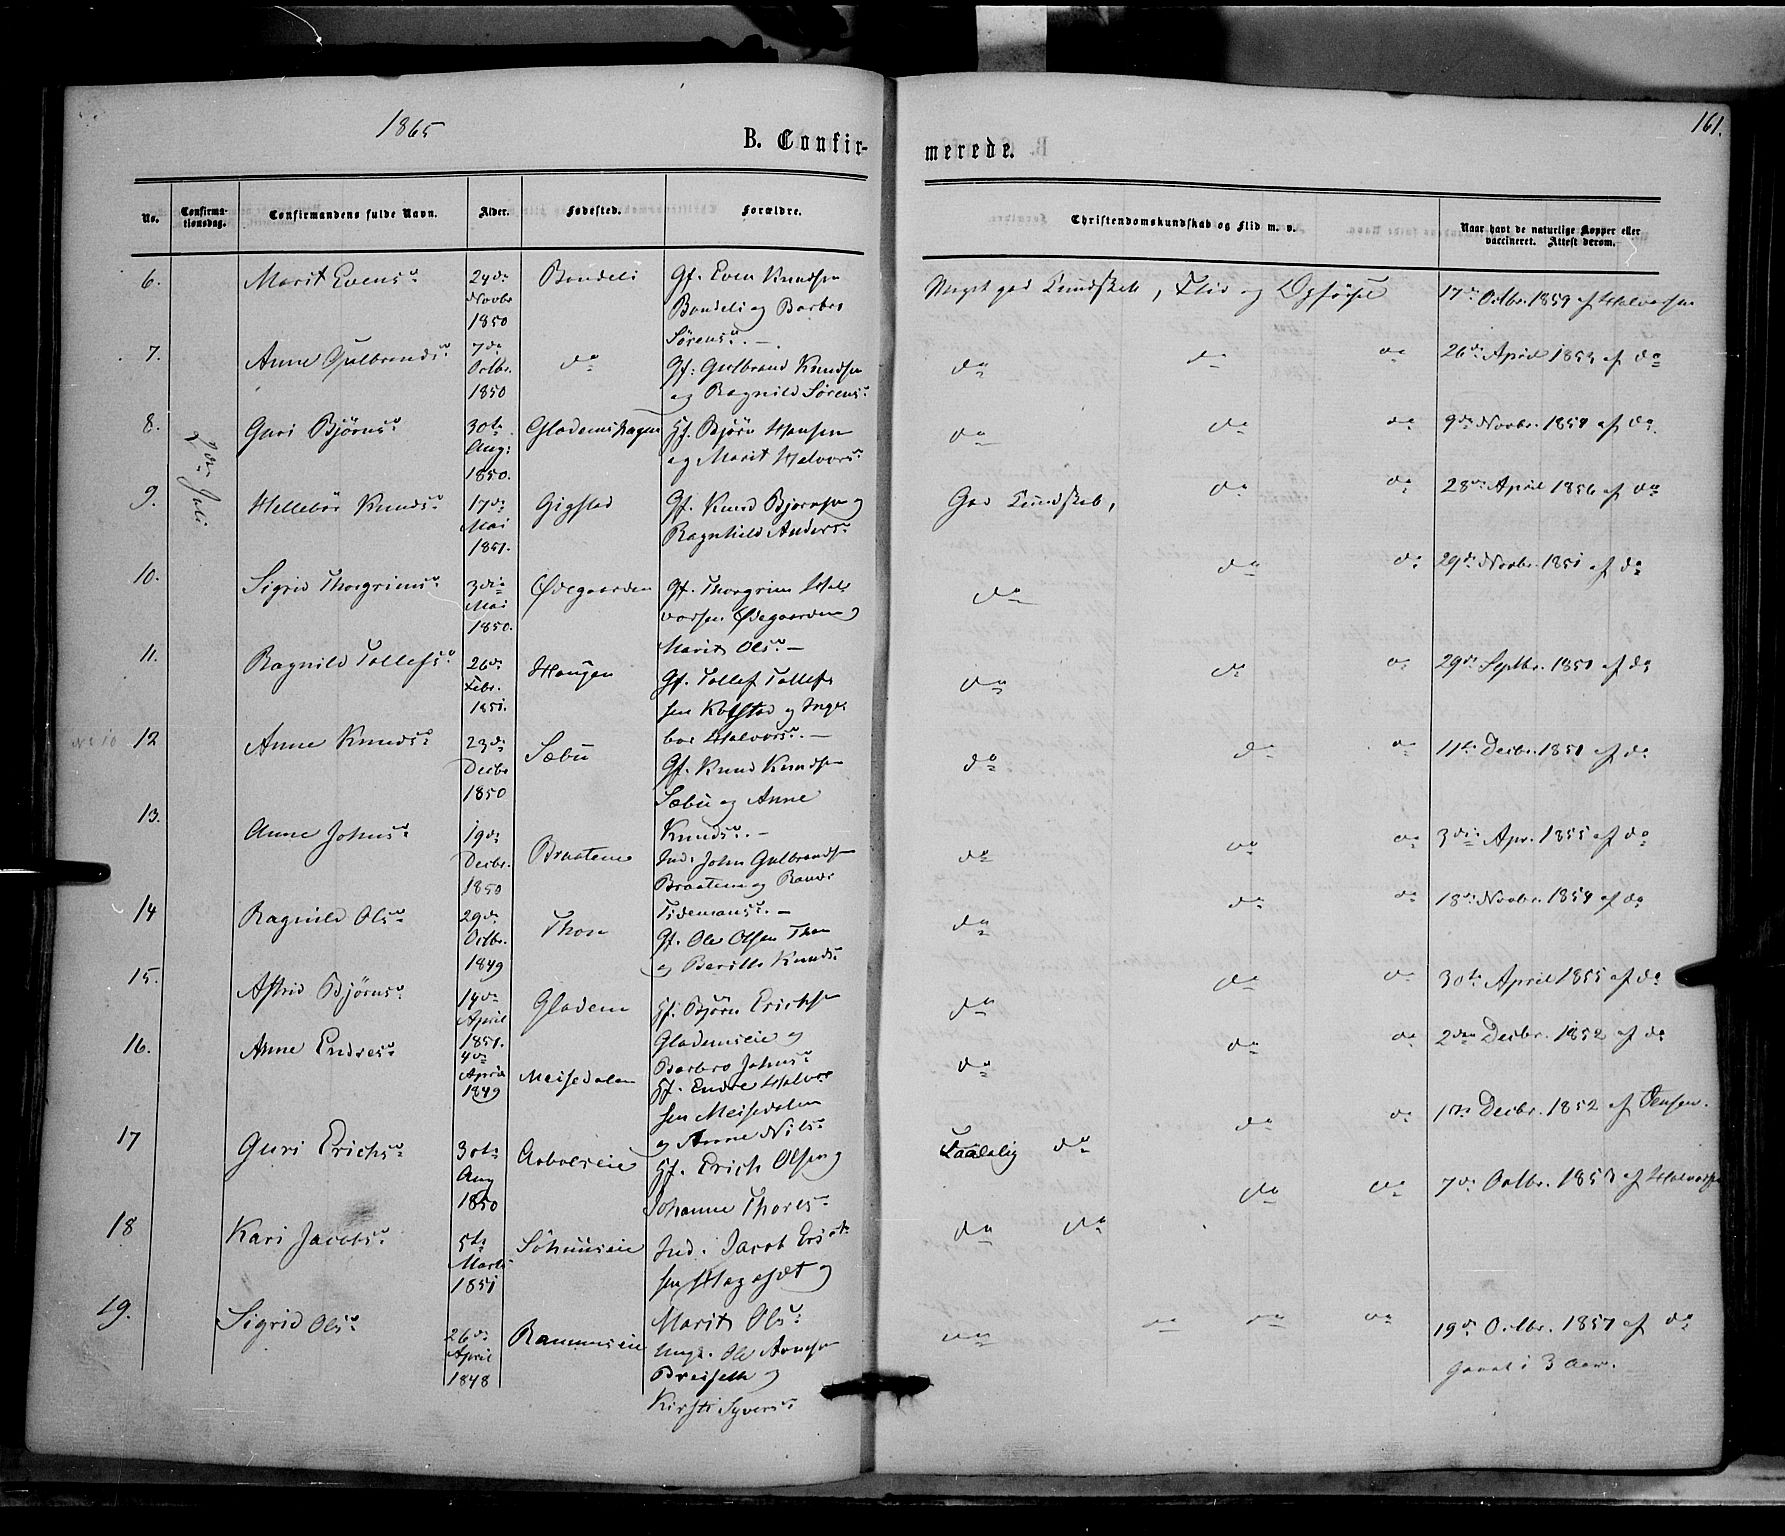 1865
161.
B. Confir-
merede.
No.
Confirma-
tionsdag.
Confirmandens fulde Navn.
Alder.
Fødested.
Forældre.
Christendomskundskab og Flid m. v.
Naar havt de naturlige Kopper eller
vaccineret. Attest derom.
2den Juli
6. Marit Evensd.
24de
Novbr
1850
Bondeli
Gf. Even Knudsen
Bondeli og Barbro
Sørensd. —
Meget god Kundskab, Flid og Opførsel
17de Octbr. 1859 af Halvorsen
7. Anne Gulbrandsd.
7de
Octbr.
1850
do
Gf. Gulbrand Knudsen
og Ragnild Sørensd.
do do do
26de April 1853 af do
8. Guri Bjørnsd.
30te
Aug:
1850.
Glademshagen
Hf. Bjørn Hansen
og Marit Halvorsd.
do do do
9de Novbr. 1854 af do.
9. Hellebør Knudsd.
17de
Mai
1851.
Gigstad
Gf. Knud Bjørnsen og
Ragnhild Andersd.
God Kundskab, do do
28de April 1856 af do
10. Sigrid Thorgrimsd.
3die
Mai
1850.
Ødegaarden
Gf. Thorgrim Hal
vorsen Ødegaarden og
Marit Olsd. —
do do do
29de Novbr. 1851 af do
11. Ragnild Tollefsd.
26de
Febr.
1851.
Haugen
Gf. Tollef Tollef
sen Kolstad og Inge
bor Halvorsd. —
do do do
29de Septbr. 1851 af do
No 10
12 Anne Knudsd.
23de
Decbr
1850
Sæbu
Gf. Knud Knudsen
Sæbu og Anne
Knudsd. —
do do do
11te Decbr. 1851 af do
13. Anne Johnsd.
19de
Decbr.
1850
Braaten
Ind. John Gulbrandsen
Braaten og Randi
Tidemansd. —
do do do
3die Apr. 1855 af do
14 Ragnild Olsd.
29de
Octbr.
1849
Thon
Gf. Ole Olsen Thon
og Beritte Knudsd.
do do do
18de Novbr. 1854 af do
15. Astrid Bjørnsd.
14de
April
1851.
Gladem
Hf. Bjørn Erichsen
Glademseie og
Barbro Johnsd.
do do do
30te April 1855 af do
16. Anne Endresd.
4de
April
1849
Meisedalen
Hf. Endre Halvor
sen Meisedalen
og Anne Nilsd.
do do do
2den Decbr. 1852 af do
17 Guri Erichsd.
30te
Aug
1850
Aabolseie
Hf. Erich Olsen og
Johanne Thoresd.
Taalelig do do do
1ste Decbr. 1852 af Jensen.
18 Kari Jacobsd.
5te
Marts
1851
Ind. Jacob Erich
sen og
Marit Olsd.
do do do do
7de Octbr. 1853 af Halvorsen
19. Sigrid Olsd.
26de
April
1848
Ramunseie
Ungk. Ole Arnesen
og
Kirsti Syversd.
do do do do
19de Octbr. 1857 af do
Gaaet i 3 Aar.